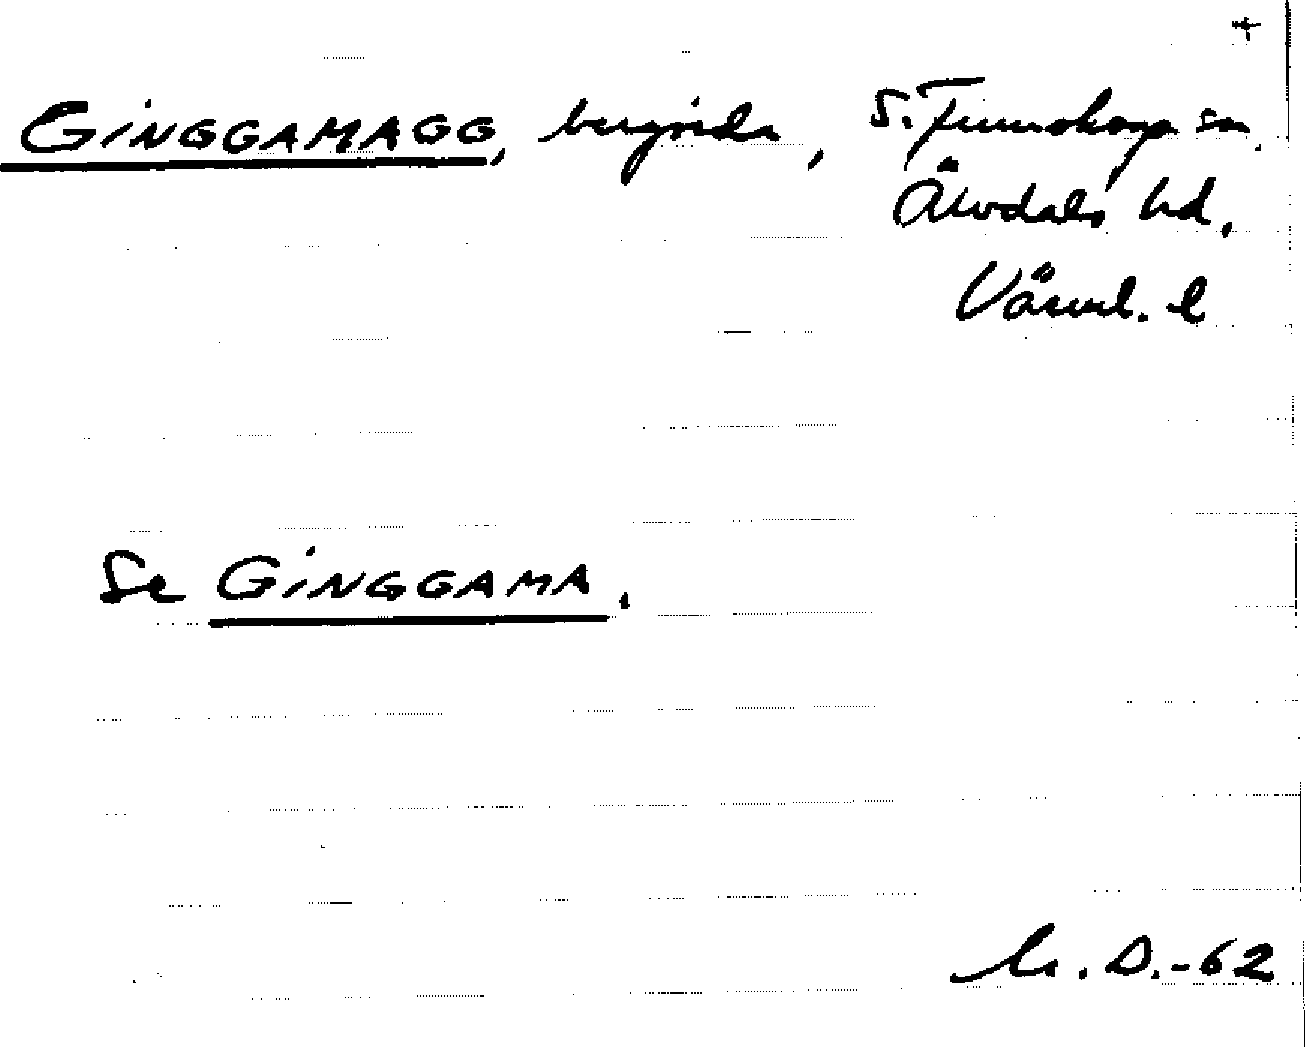 GINGGAMAGG, bergsida, S. Finnskoga sn.
Älvdals hd,
Värml. l
Se GINGGAMA.
D.-62